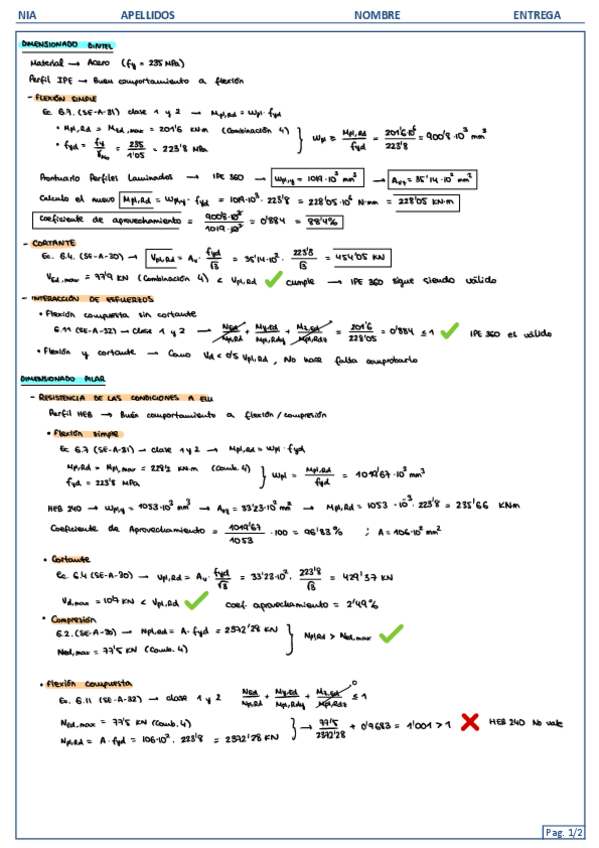 NIA APELLIDOS NOMBRE ENTREGA
DIMENSIONADO DINTEL
Material → Acero (fy = 235 MPa)
Perfil IPE → Buen comportamiento a flexión
- FLEXIÓN SIMPLE
Ec. 6.7. (SE-A-31) clase 1 y 2 → Mpl,Rd = Wpl · fyd
• Mpl,Rd = MEd,max = 201'6 KN·m (Combinación 4)
• fyd = fy/γM0 = 235/1'05 = 223'8 MPa
Wpl ≥ Mpl,Rd/fyd = 201'6·10⁶/223'8 = 900'8·10³ mm³
Prontuario Perfiles Laminados → IPE 360 → Wpl,y = 1019·10³ mm³ → Avz = 35'14·10² mm²
Calculo el nuevo Mpl,Rd = Wpl,y · fyd = 1019·10³ · 223'8 = 228'05·10⁶ N·mm = 228'05 KN·m
Coeficiente de aprovechamiento = 900'8·10³/1019·10³ = 0'884 = 88'4%
- CORTANTE
Ec. 6.4. (SE-A-30) → Vpl,Rd = Av · fyd/√3 = 35'14·10² · 223'8/√3 = 454'05 KN
VEd,max = 77'9 KN (Combinación 4) < Vpl,Rd ✓ cumple → IPE 360 sigue siendo válido
- INTERACCIÓN DE ESFUERZOS
• Flexión compuesta sin cortante
6.11 (SE-A-32) → Clase 1 y 2 → NEd/Npl,Rd + My,Ed/Mpl,Rdy + Mz,Ed/Mpl,Rdz = 201'6/228'05 = 0'884 ≤ 1 ✓ IPE 360 es válido
• Flexión y cortante → Como Vd < 0'5 Vpl,Rd, No hace falta comprobarlo
DIMENSIONADO PILAR
- RESISTENCIA DE LAS CONDICIONES A ELU
Perfil HEB → Buen comportamiento a flexión / compresión
• Flexión simple
Ec 6.7 (SE-A-31) → clase 1 y 2 → Mpl,Rd = Wpl · fyd
Mpl,Rd = Mpl,max = 228'2 KN·m (Comb. 4)
fyd = 223'8 MPa
Wpl = Mpl,Rd/fyd = 1019'67·10³ mm³
HEB 240 → Wpl,y = 1053·10³ mm³ → Avz = 33'23·10² mm² → Mpl,Rd = 1053·10⁻³·223'8 = 235'66 KNm
Coeficiente de Aprovechamiento = 1019'67/1053 · 100 = 96'83% ; A = 106·10² mm²
• Cortante
Ec. 6.4 (SE-A-30) → Vpl,Rd = Av · fyd/√3 = 33'23·10² · 223'8/√3 = 429'37 KN
Vd,max = 10'7 KN < Vpl,Rd ✓ coef. aprovechamiento = 2'49%
• Compresión
6.2. (SE-A-30) → Npl,Rd = A · fyd = 2372'28 KN
NEd,max = 77'5 KN (Comb. 4)
Npl,Rd > NEd,max ✓
• Flexión Compuesta
Ec. 6.11 (SE-A-32) → clase 1 y 2 NEd/Npl,Rd + My,Ed/Mpl,Rdy + Mz,Ed/Mpl,Rdz ≤ 1
NEd,max = 77'5 KN (Comb. 4)
Npl,Rd = A · fyd = 106·10² · 223'8 = 2372'28 KN
→ 77'5/2372'28 + 0'9683 = 1'001 > 1 ✗ HEB 240 No vale
Pag. 1/2